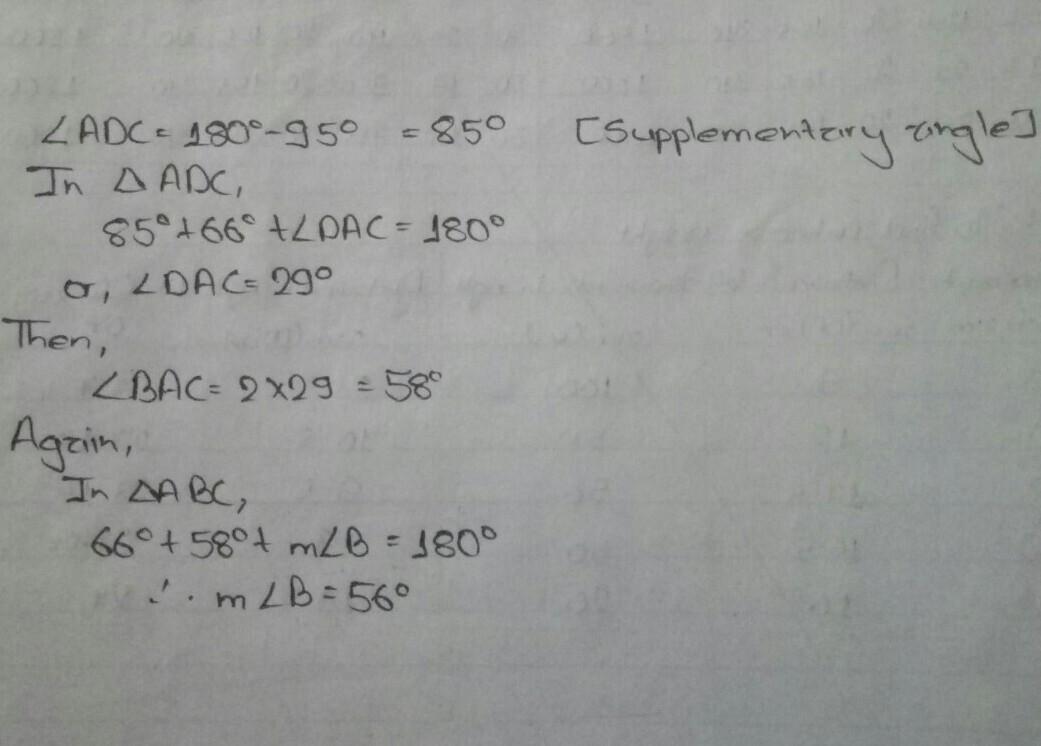 ∠ADC = 180°-95° = 85° [Supplementary angle]
In △ ADC,
85°+66°+∠DAC = 180°
or, ∠DAC= 29°
Then,
∠BAC= 2×29 = 58°
Again,
In △ABC,
66°+58°+ m∠B = 180°
∴ m∠B = 56°